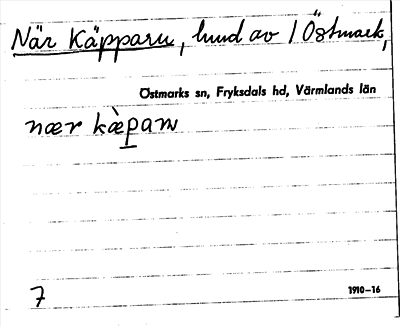 När Käpparu, hund av 1 Östmark,
Östmarks sn, Fryksdals hd, Värmlands län
nær kæ̀paru
7
1910–16